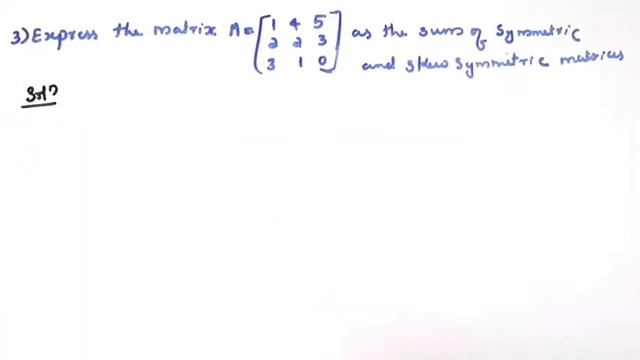 3) Express the matrix A = [1 4 5 as the sum of Symmetric
2 2 3
3 1 0] and skew symmetric matrices
Sol?